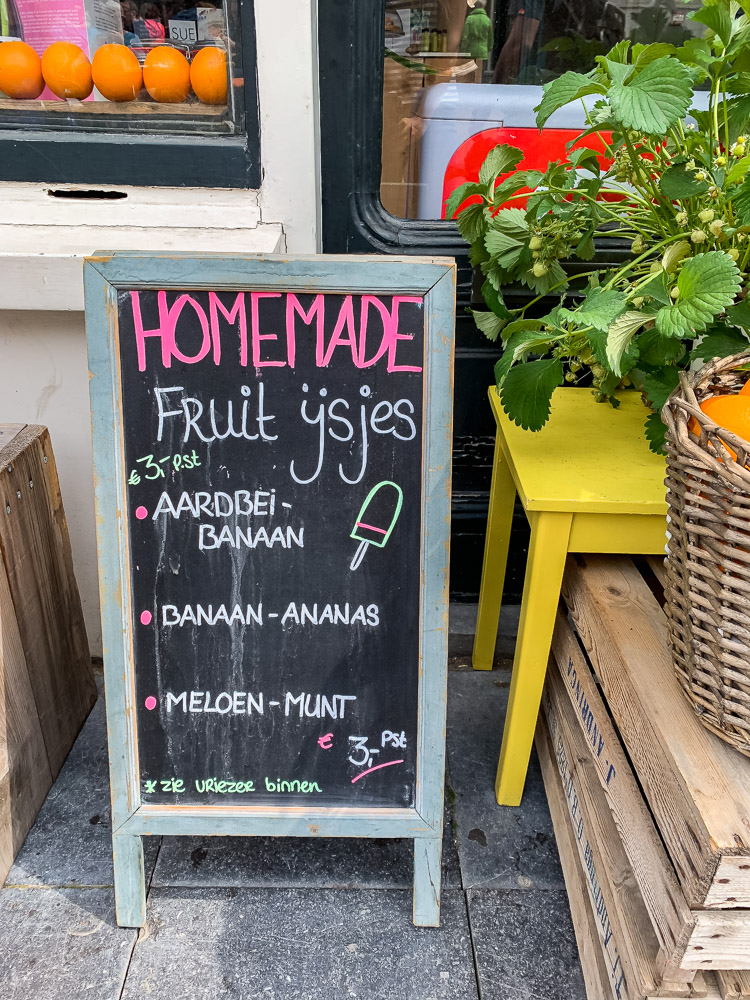 SUE
HOMEMADE
FRuit ijsjes
€3,- p.st
AARDBEi-
BANAAN
BANAAN-ANANAS
MELOEN-MUNT
€ 3,- Pst
* zie VRiezer binnen